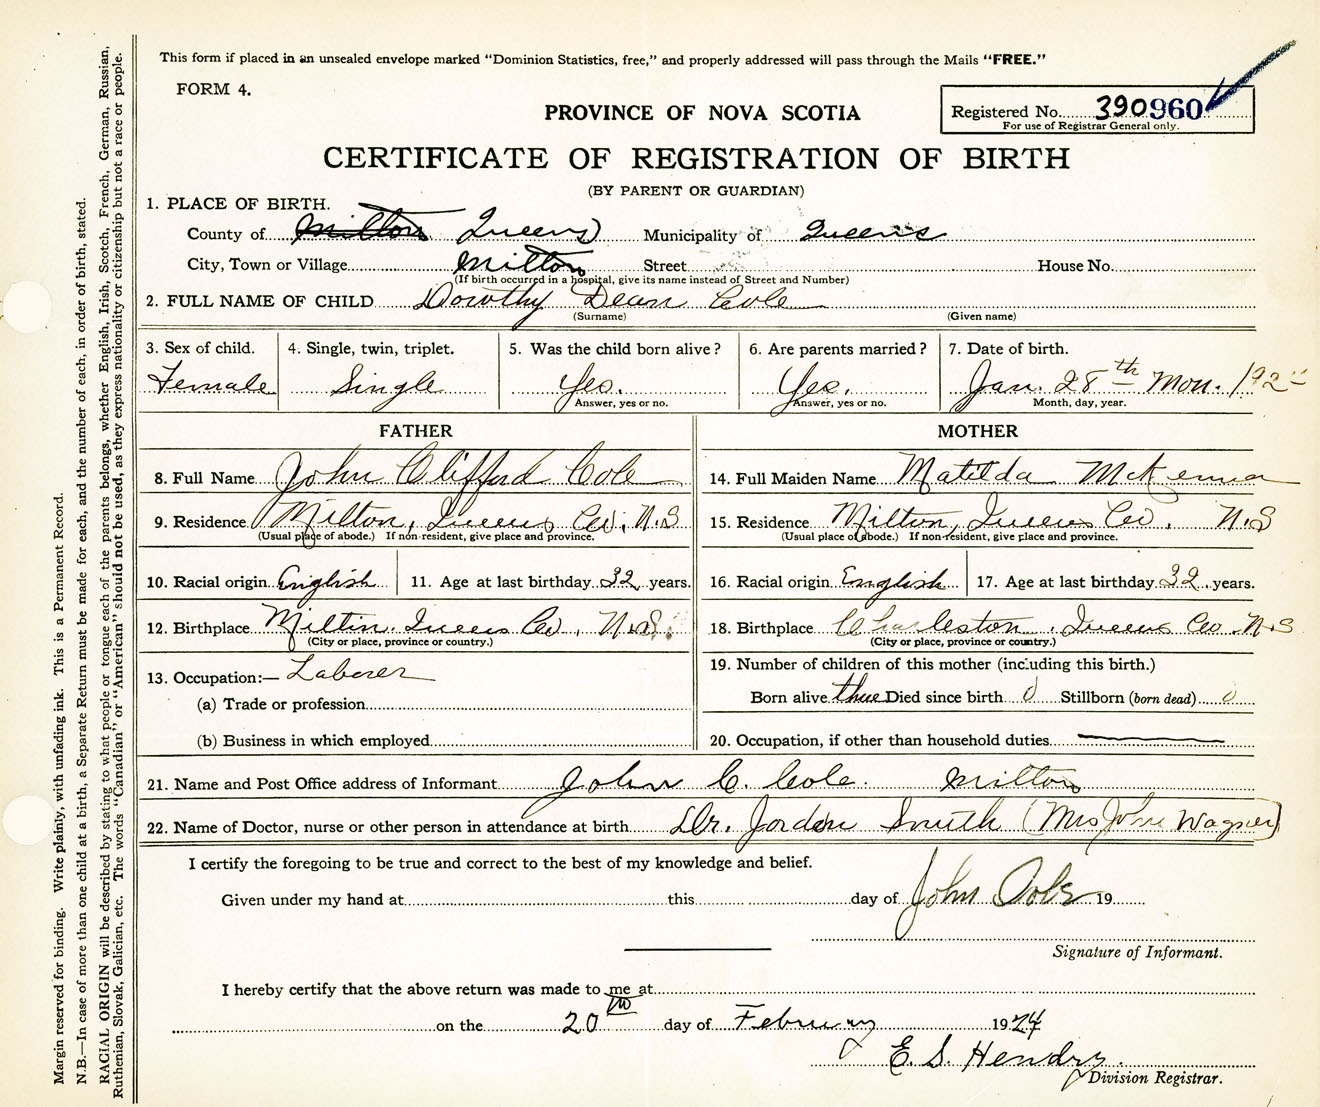 This form if placed in an unsealed envelope marked "Dominion Statistics, free," and properly addressed will pass through the Mails "FREE."
FORM 4.
PROVINCE OF NOVA SCOTIA
Registered No. 390960
For use of Registrar General only.
CERTIFICATE OF REGISTRATION OF BIRTH
(BY PARENT OR GUARDIAN)
1. PLACE OF BIRTH.
County of Milton Queens Municipality of Queens
City, Town or Village Milton Street House No.
(If birth occurred in a hospital, give its name instead of Street and Number)
2. FULL NAME OF CHILD Dorothy Dean Cole
(Surname) (Given name)
3. Sex of child. 4. Single, twin, triplet. 5. Was the child born alive? 6. Are parents married? 7. Date of birth.
Female Single Yes. Yes. Jan. 28th Mon.
Answer, yes or no. Answer, yes or no. Month, day, year.
FATHER MOTHER
8. Full Name John Clifford Cole 14. Full Maiden Name Matilda McKenna
9. Residence Milton, Queens Co, N.S 15. Residence Milton, Queens Co. N.S
(Usual place of abode.) If non-resident, give place and province. (Usual place of abode.) If non-resident, give place and province.
10. Racial origin English 11. Age at last birthday 32 years. 16. Racial origin English 17. Age at last birthday 32 years.
12. Birthplace Milton. Queens Co, N.S. 18. Birthplace Charleston, Queens Co. N.S
(City or place, province or country.) (City or place, province or country.)
13. Occupation:— Laborer 19. Number of children of this mother (including this birth.)
(a) Trade or profession Born alive three Died since birth 0 Stillborn (born dead) 0
(b) Business in which employed 20. Occupation, if other than household duties
21. Name and Post Office address of Informant John C. Cole. Milton
22. Name of Doctor, nurse or other person in attendance at birth Dr. Jorden Smith (Mrs John Wagner)
I certify the foregoing to be true and correct to the best of my knowledge and belief.
Given under my hand at this day of John Cole 19
Signature of Informant.
I hereby certify that the above return was made to me at
on the 20th day of February 1924
E. S. Hendry.
Division Registrar.
Margin reserved for binding. Write plainly, with unfading ink. This is a Permanent Record.
N.B.—In case of more than one child at a birth, a Separate Return must be made for each, and the number of each, in order of birth, stated.
RACIAL ORIGIN will be described by stating to what people or tongue each of the parents belongs, whether English, Irish, Scotch, French, German, Russian,
Ruthenian, Slovak, Galician, etc. The words "Canadian" or "American" should not be used, as they express nationality or citizenship but not a race or people.